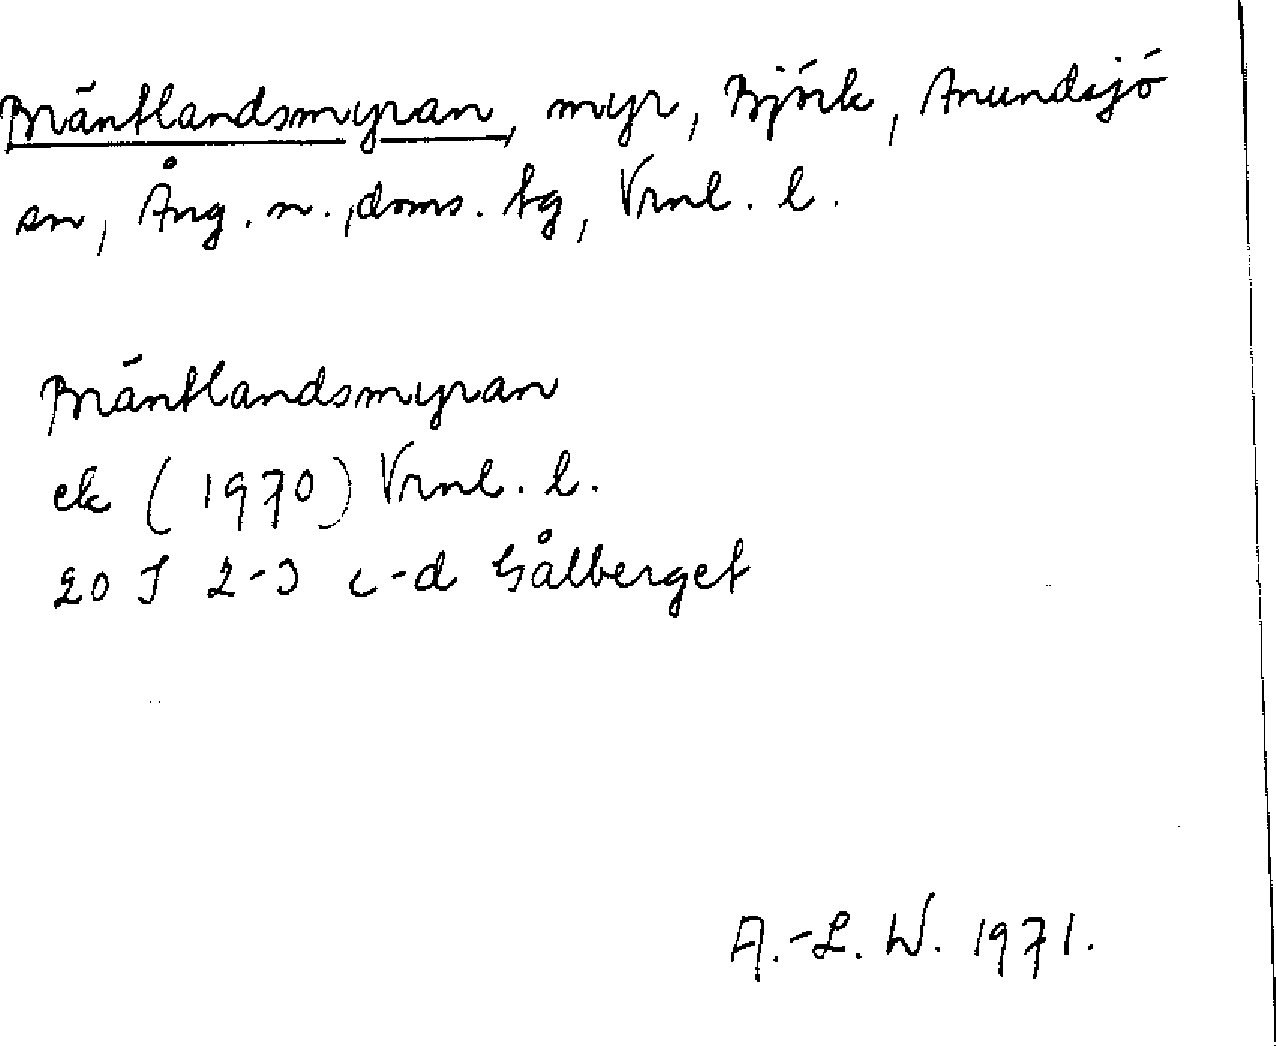 Bräntlandsmyran, myr, Björk, Anundsjö
sn, Ång. n., doms. tg, Vrnl. l.
Bräntlandsmyran
ek (1970) Vrnl. l.
20 J 2-3 c-d Gålberget
A.-L. W. 1971.